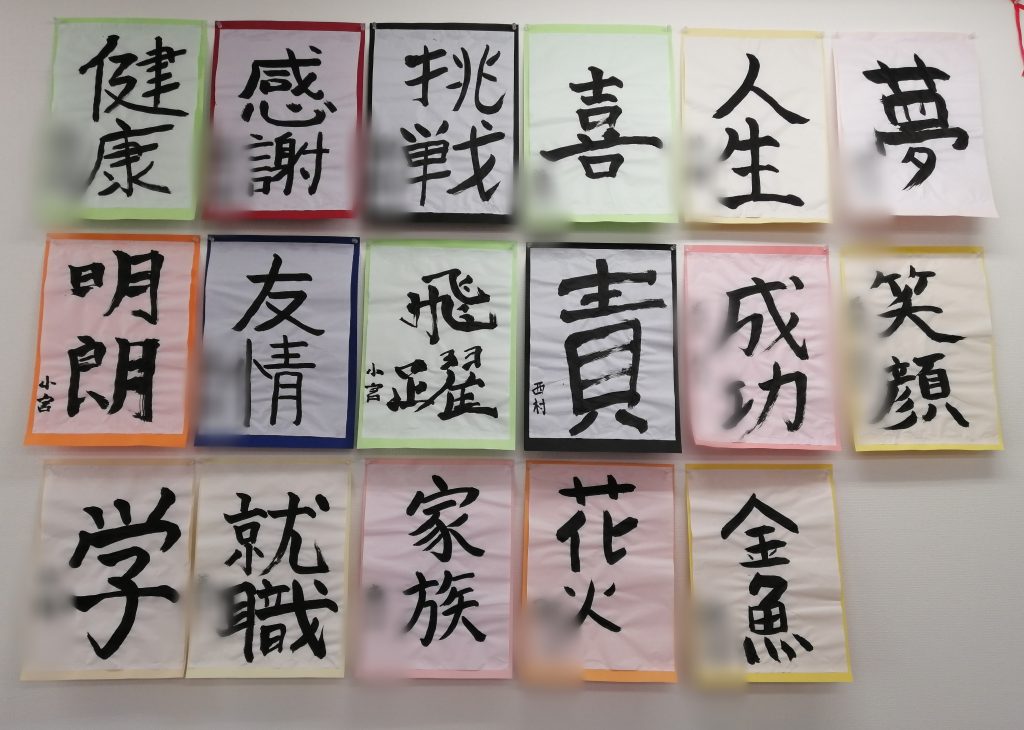 健康
感謝
挑戦
喜
人生
夢
明朗
小宮
友情
飛躍
小宮
責
西村
成功
笑顔
学
就職
家族
花火
金魚